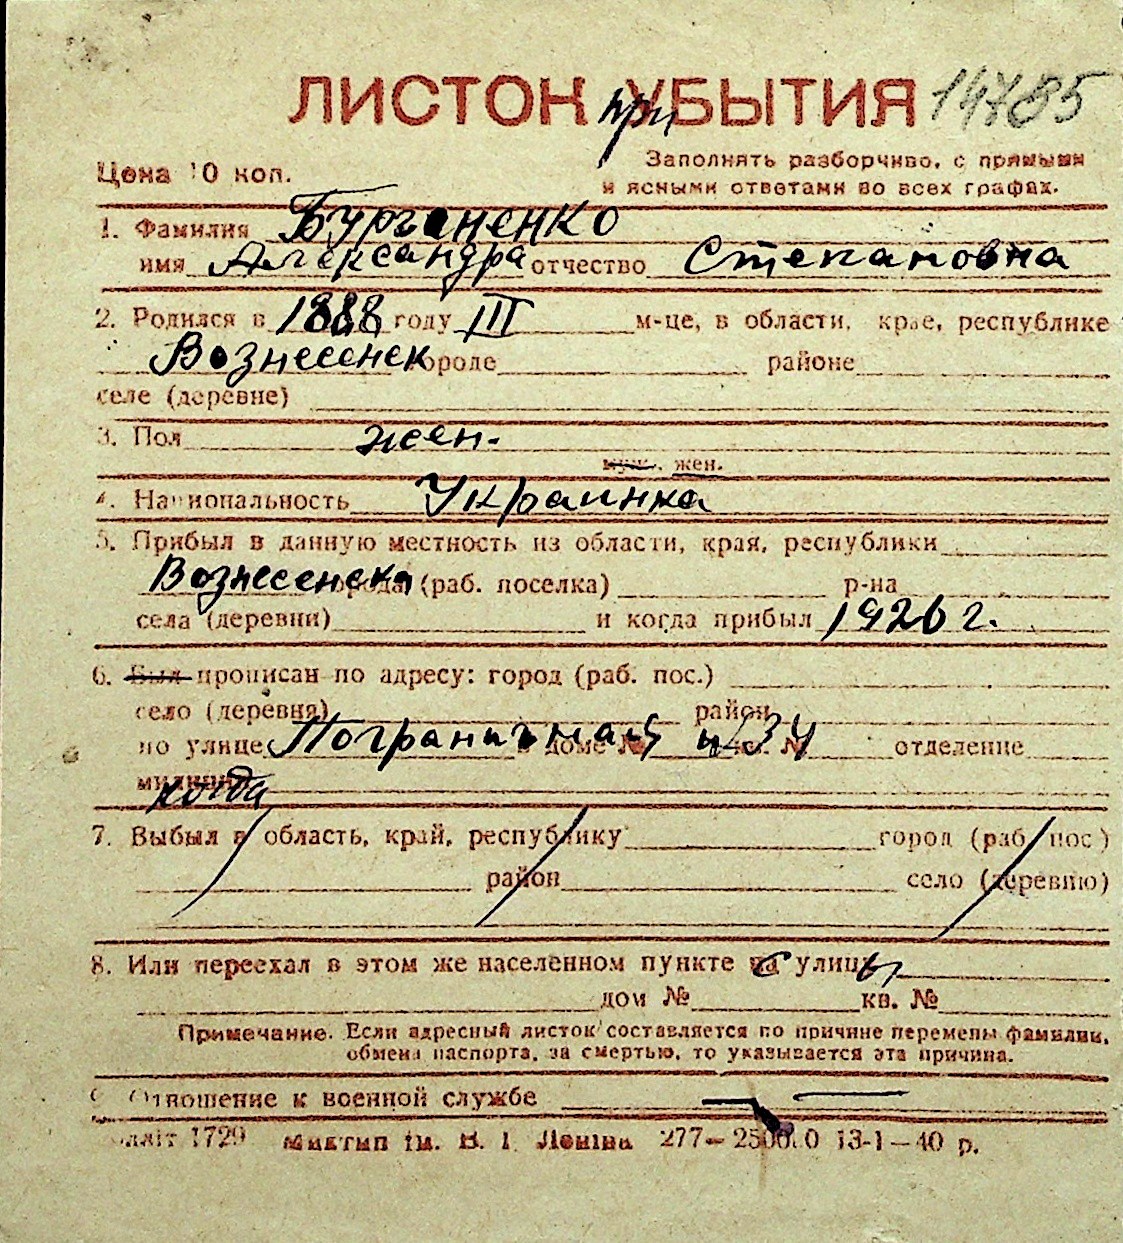 ЛИСТОК УБЫТИЯ при 14785
Цена 10 коп.
Заполнять разборчиво, с прямыми
и ясными ответами во всех графах.
1. Фамилия Бурганенко
имя Александра отчество Степановна
2. Родился в 1888 году III м-це, в области, крае, республике
Вознесенск городе районе
селе (деревне)
3. Пол жен.
муж., жен.
4. Национальность Украинка
5. Прибыл в данную местность из области, края, республики
Вознесенска города (раб. поселка) р-на
села (деревни) и когда прибыл 1926 г.
6. Был прописан по адресу: город (раб. пос.)
село (деревня) район
по улице Пограничная доме № кв. № отделение
милиции когда
7. Выбыл в область, край, республику город (раб. пос.)
район село (деревню)
8. Или переехал в этом же населенном пункте с улицы
дом № кв. №
Примечание. Если адресный листок составляется по причине перемены фамилии,
обмена паспорта, за смертью, то указывается эта причина.
9. Отношение к военной службе
1729 Миктип ім. В. І. Леніна 277— 13-1—40 р.